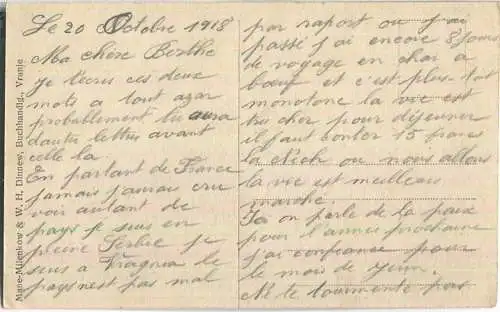 Mane-Milenkow & W. H. Dinnew, Buchhandlg., Vranje
Le 20 Octobre 1918
Ma chère Berthe
je t'ecris ces deux
mots a tout azar
probablement tu aura
dautre lettres avant
celle la
En partant de France
jamais j'aurais cru
voir autant de
pays je suis en
pleine Serbie je
suis a Vragnia le
pays n'est pas mal
par raport ou j'ai
passé j'ai encore 8 jours
de voyage en char a
bœuf et c'est plus-tot
monotone la vie est
tres cher pour déjeuner
il faut conter 15 francs
la ou nous allons
la vie est meilleur
marche.
Ici on parle de la paix
pour l'année prochaine
j'ai confiance pour
le mois de Juin.
Ne te tourmente pas